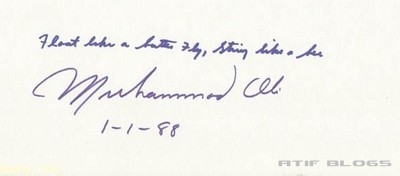 Float like a butter Fly, Sting like a bee
Muhammad Ali
1-1-88
ATIF BLOGS